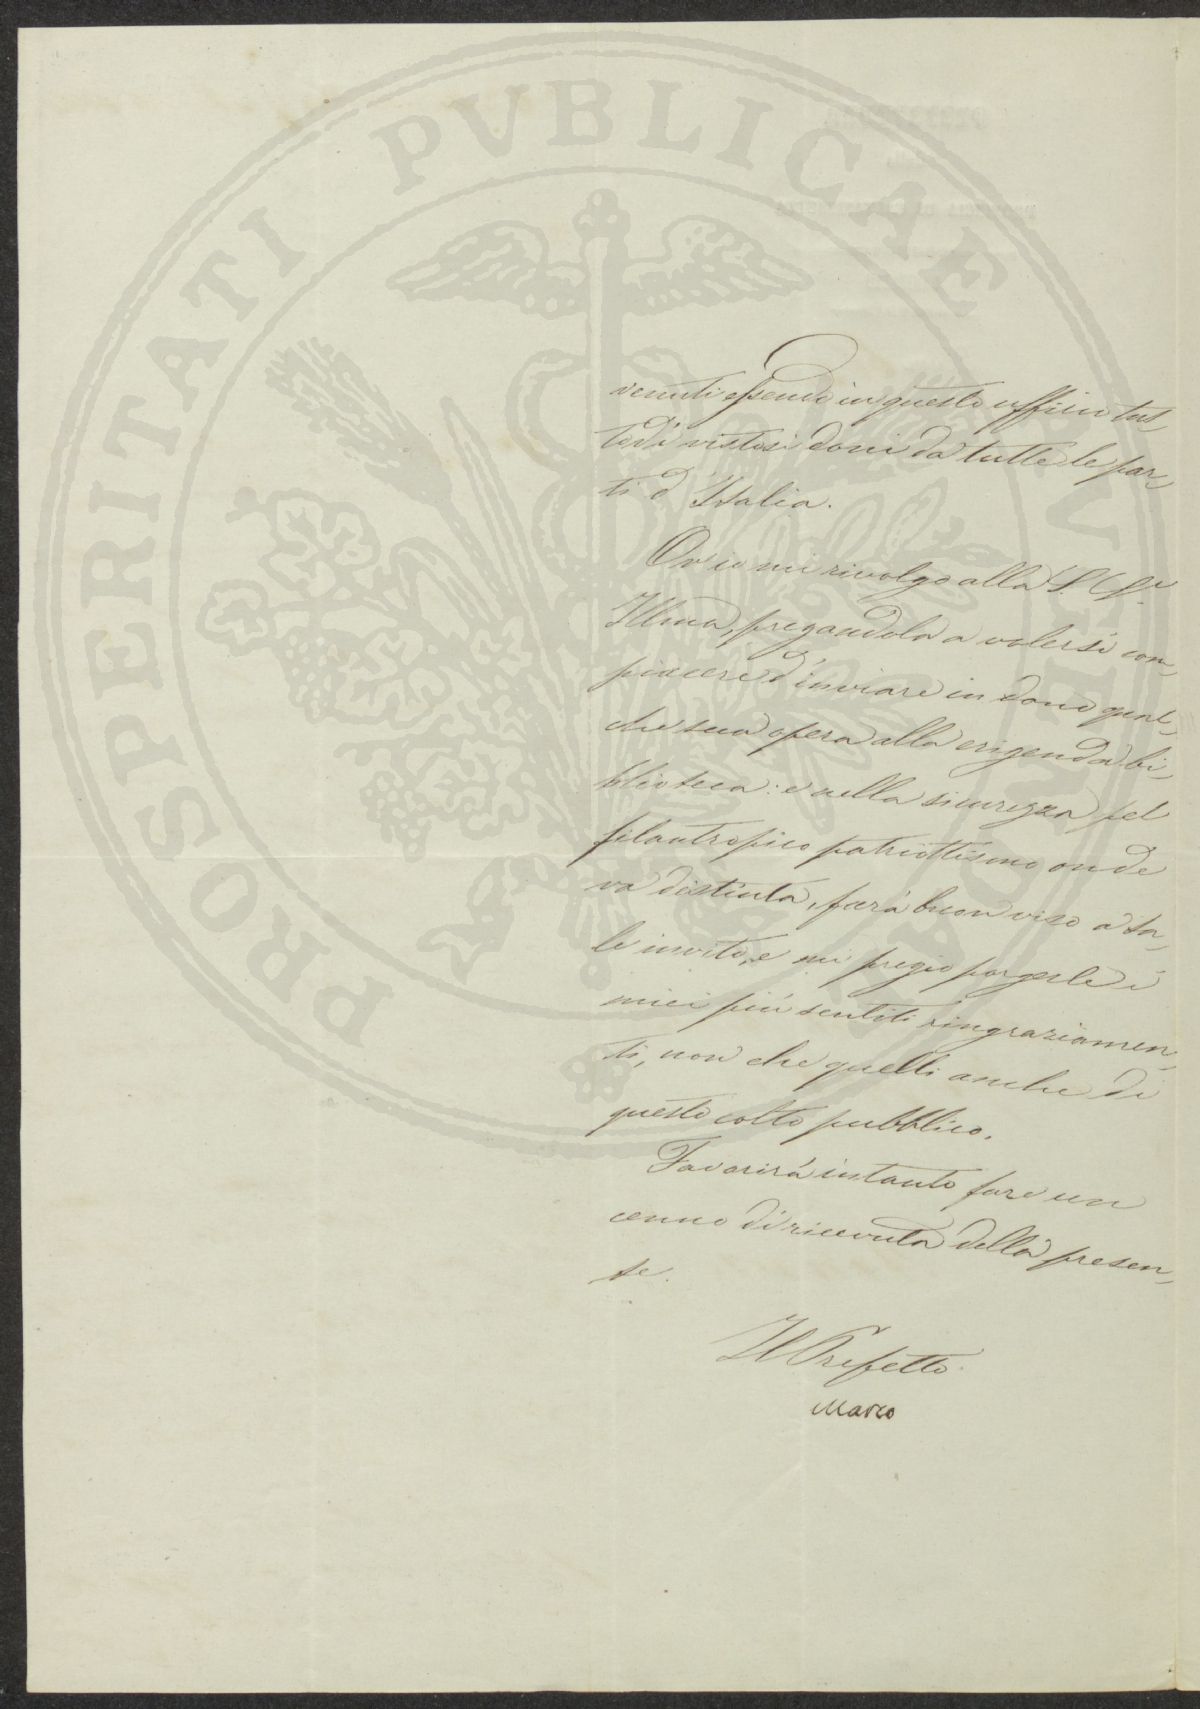 PROSPERITATI PVBLICAE AVGENDAE
venuti essendo in questo ufficio tut-
todì vistosi doni da tutte le par-
ti d'Italia.
Or io mi rivolgo alla S. V.
Illma, pregandola a volersi com-
piacere d'inviare in dono qual-
che sua opera alla erigenda bi-
blioteca: e nella sicurezza pel
filantropico patriottismo onde
va distinta, farà buon viso a ta-
le invito, e mi pregio porgerle i
miei più sentiti ringraziamen-
ti, non che quelli anche di
questo colto pubblico.
Favorirà intanto fare un
cenno di ricevuta della presen-
te.
Il Prefetto
Marco